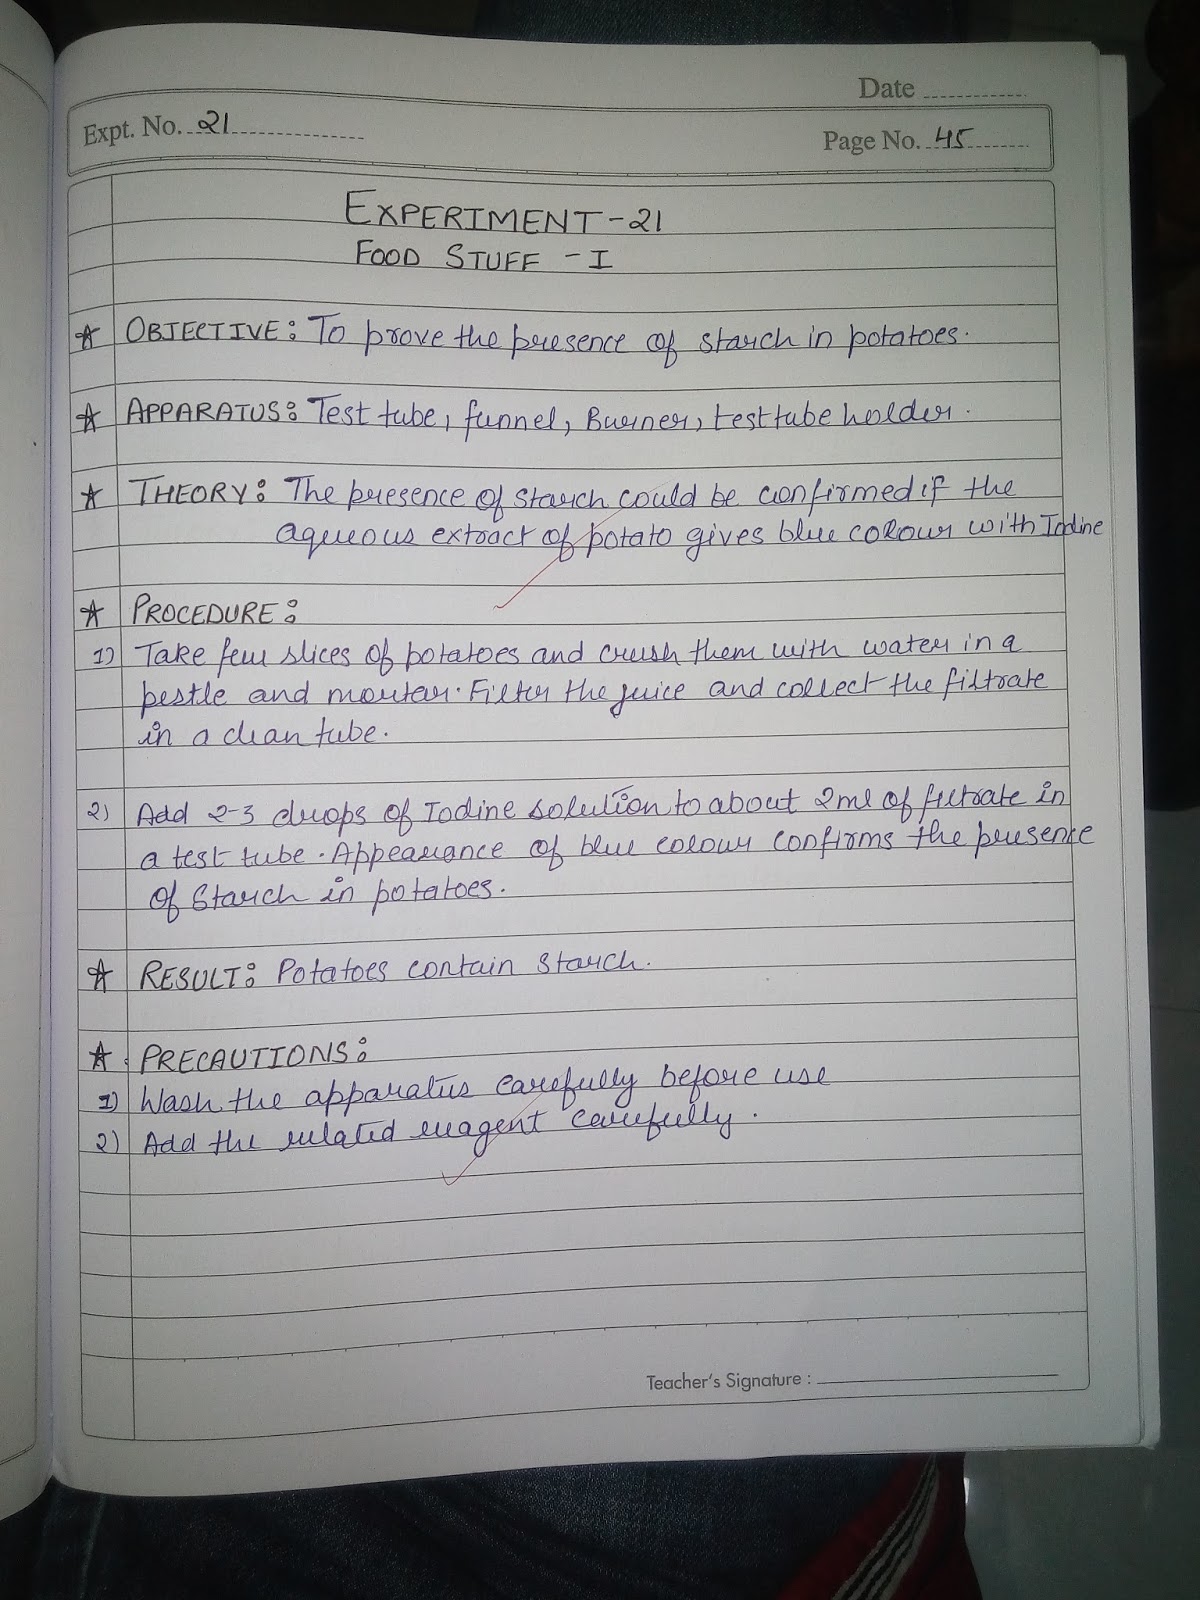 Date
Expt. No. 21
Page No. 45
EXPERIMENT-21
FOOD STUFF - I
OBJECTIVE: To prove the presence of starch in potatoes.
APPARATUS: Test tube, funnel, Burner, test tube holder.
THEORY: The presence of starch could be confirmed if the
aqueous extract of potato gives blue colour with Iodine
PROCEDURE:
1) Take few slices of potatoes and crush them with water in a
pestle and mortar. Filter the juice and collect the filtrate
in a clean tube.
2) Add 2-3 drops of Iodine solution to about 2ml of filtrate in
a test tube. Appearance of blue colour confirms the presence
of Starch in potatoes.
RESULT: Potatoes contain starch.
PRECAUTIONS:
1) Wash the apparatus carefully before use
2) Add the related reagent carefully.
Teacher's Signature :